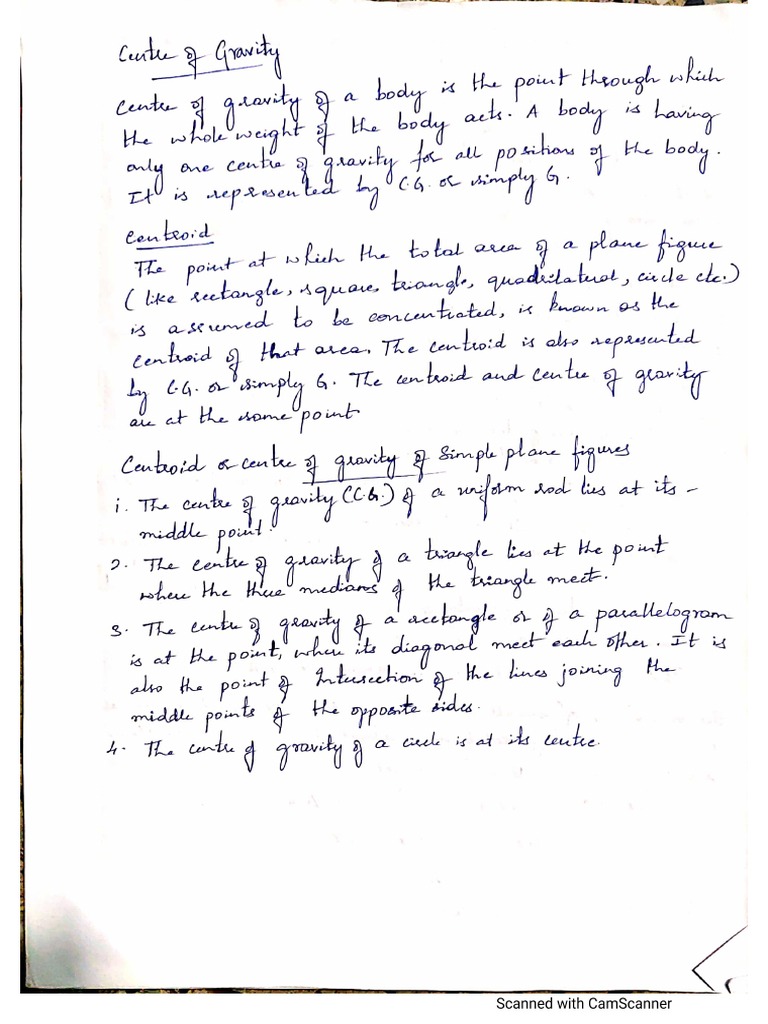 Centre of Gravity
Centre of gravity of a body is the point through which
the whole weight of the body acts. A body is having
only one centre of gravity for all positions of the body.
It is represented by C.G. or simply G.
Centroid
The point at which the total area of a plane figure
(like rectangle, square, triangle, quadrilateral, circle etc.)
is assumed to be concentrated, is known as the
centroid of that area. The centroid is also represented
by C.G. or simply G. The centroid and centre of gravity
are at the same point.
Centroid or centre of gravity of Simple plane figures
1. The centre of gravity (C.G.) of a uniform rod lies at its -
middle point.
2. The centre of gravity of a triangle lies at the point
where the three medians of the triangle meet.
3. The centre of gravity of a rectangle or of a parallelogram
is at the point, where its diagonal meet each other. It is
also the point of Intersection of the lines joining the
middle points of the opposite sides.
4. The centre of gravity of a circle is at its centre.
Scanned with CamScanner